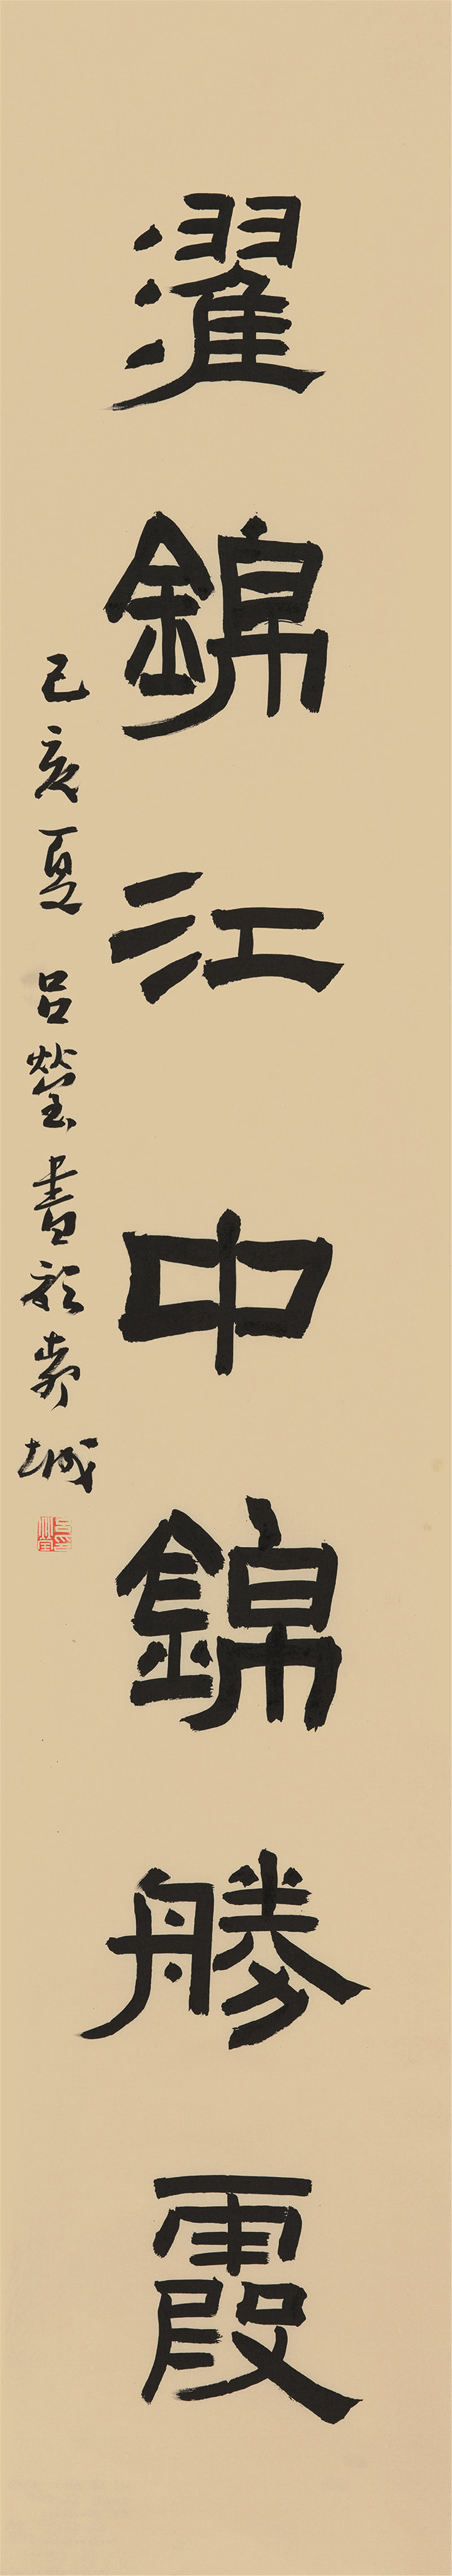 濯錦江中錦勝霞
己亥夏 呂瑩書於費城